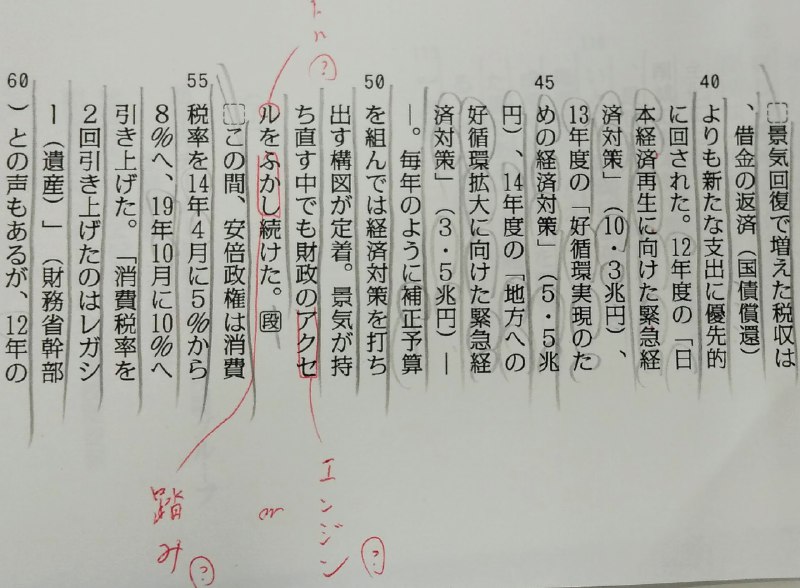 景気回復で増えた税収は
、借金の返済（国債償還）
40
よりも新たな支出に優先的
に回された。12年度の「日
本経済再生に向けた緊急経
済対策」（10・3兆円）、
13年度の「好循環実現のた
45
めの経済対策」（5・5兆
円）、14年度の「地方への
好循環拡大に向けた緊急経
済対策」（3・5兆円）―
―。毎年のように補正予算
50
を組んでは経済対策を打ち
出す構図が定着。景気が持
ち直す中でも財政のアクセ
ルをふかし続けた。段
この間、安倍政権は消費
55
税率を14年4月に5％から
8％へ、19年10月に10％へ
引き上げた。「消費税率を
2回引き上げたのはレガシ
ー（遺産）」（財務省幹部
60
）との声もあるが、12年の
?
エンジン ?
or
踏み ?